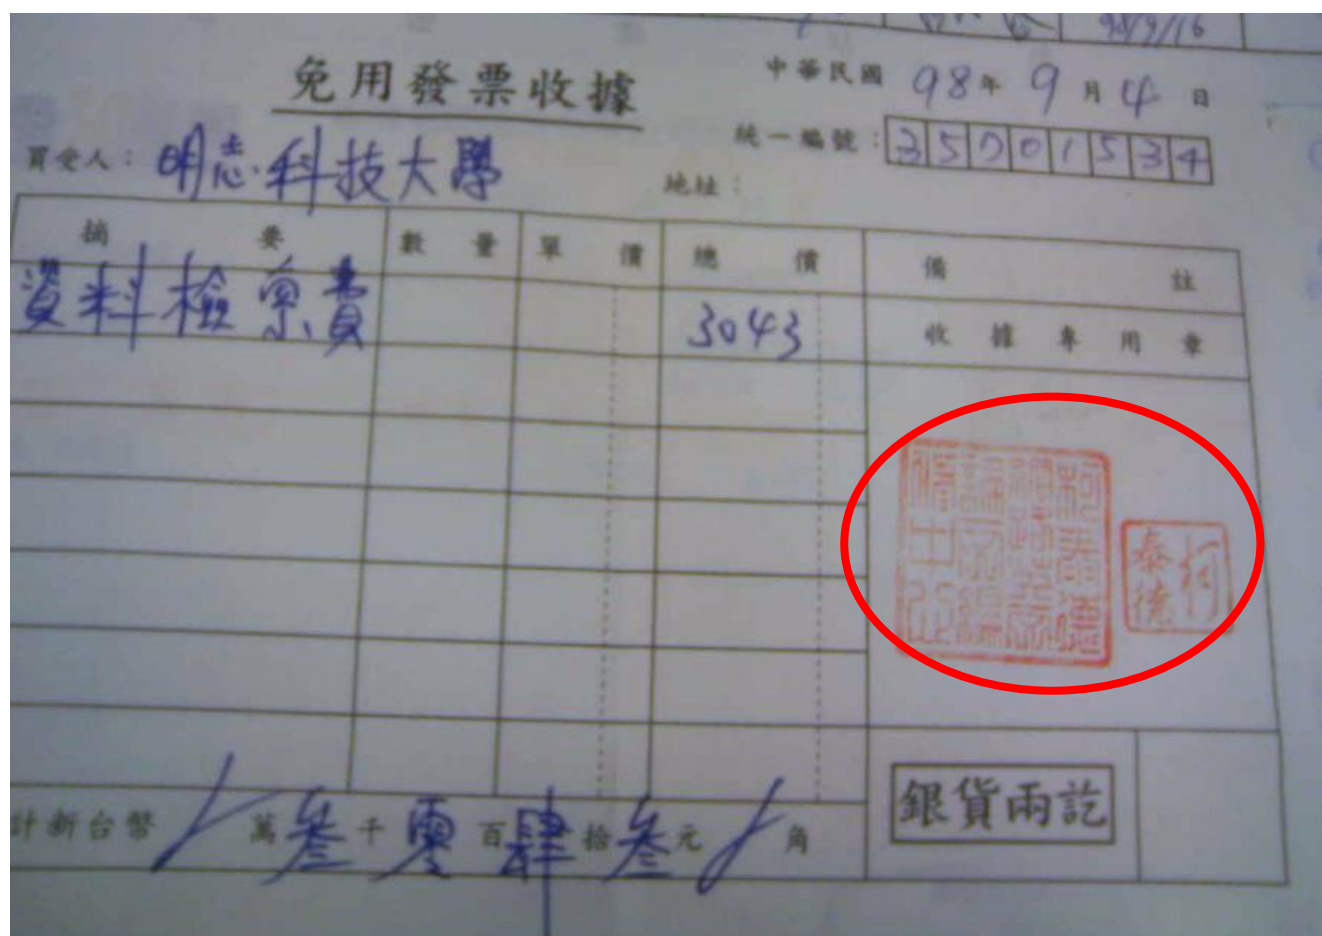 98/9/16
免用發票收據
中華民國 98年 9月4日
買受人：明志科技大學
統一編號：35001534
地址：
摘要 數量 單價 總價 備註
資料檢索費 3043
收據專用章
柯泰德
計新台幣/萬叁千零百肆拾叁元/角
銀貨兩訖